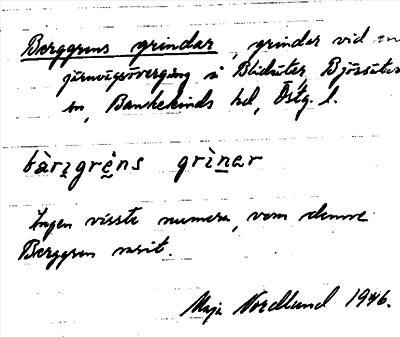 Berggrens grindar, grindar vid en
järnvägsövergång å Blidsäter, Bjärsäter
sn, Bankekinds hd, Östg. l.
bàrzgrèns grìnar
Ingen visste numera, vem denne
Berggren varit.
Maja Nordlund 1946.